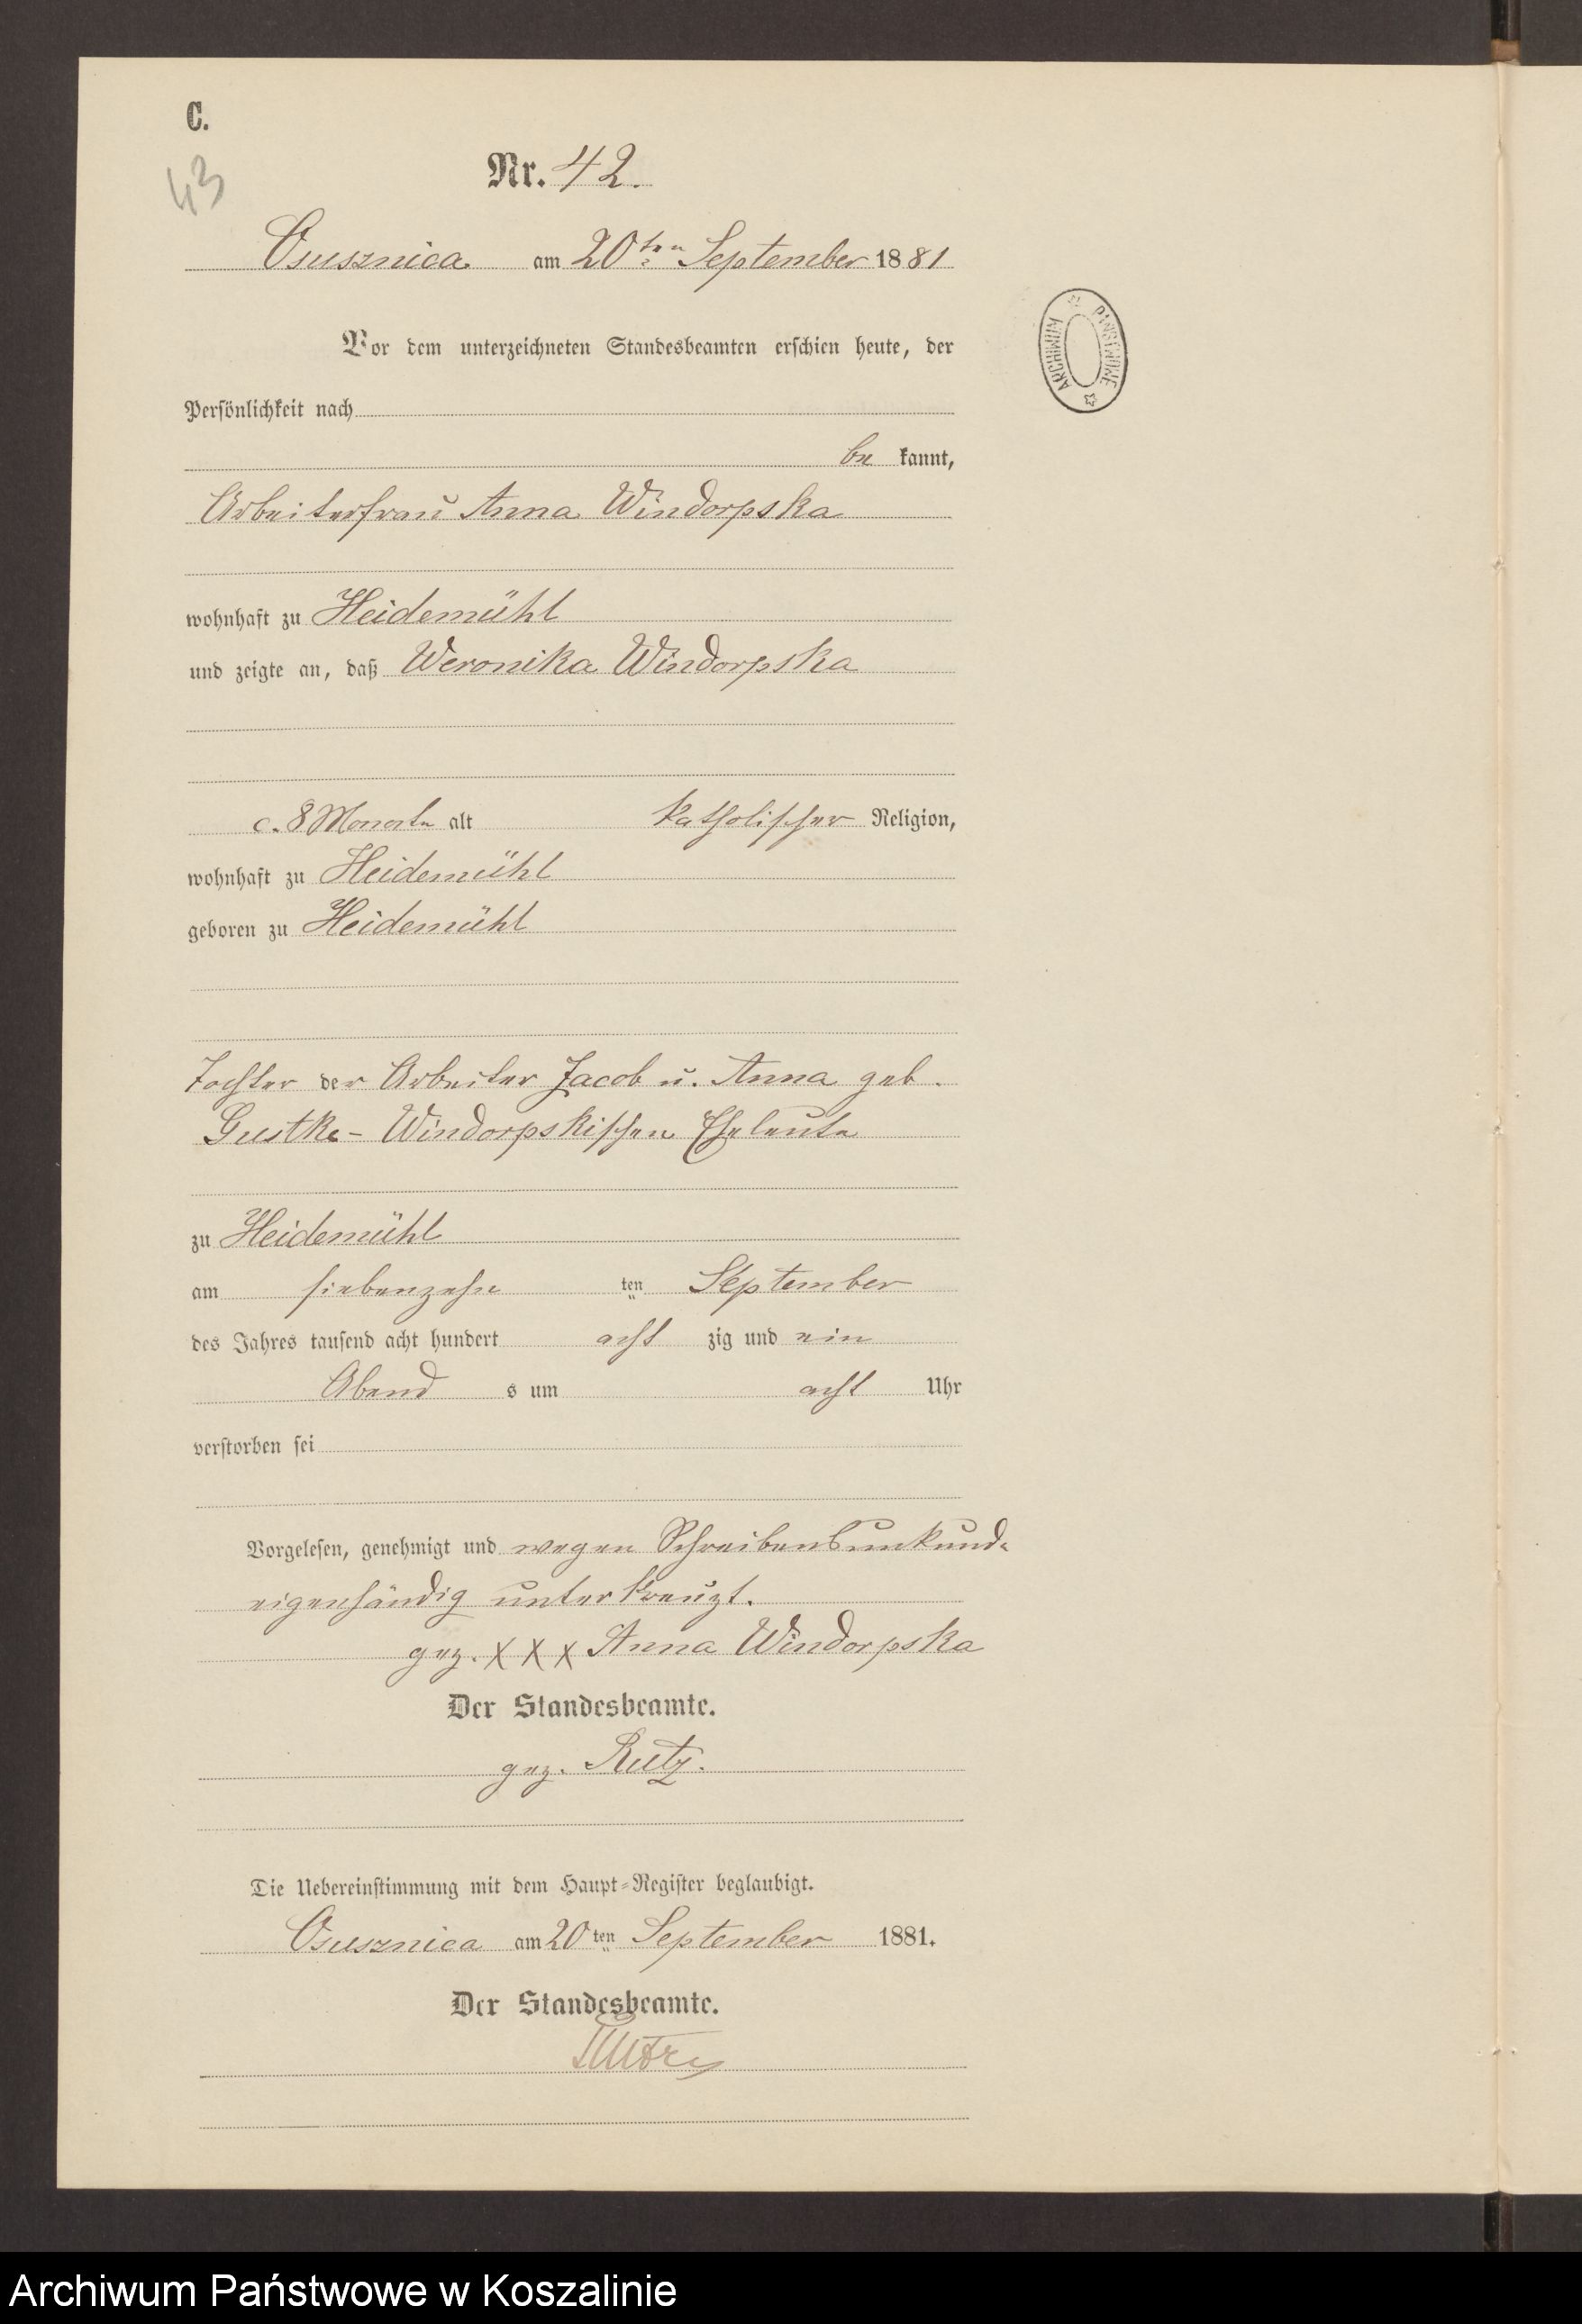 C.
43
Nr. 42.
Osusznica am 20ten September 1881
Vor dem unterzeichneten Standesbeamten erschien heute, der
Persönlichkeit nach
be kannt,
Arbeiterfrau Anna Windorpska
wohnhaft zu Heidemühl
und zeigte an, daß Weronika Windorpska
c. 8 Monate alt katholischer Religion,
wohnhaft zu Heidemühl
geboren zu Heidemühl
Tochter der Arbeiter Jacob u. Anna geb.
Gustke- Windorpskischen Eheleute
zu Heidemühl
am siebenzehn ten September
des Jahres tausend acht hundert acht zig und ein
Abend s um acht Uhr
verstorben sei
Vorgelesen, genehmigt und wegen Schreibensunkunde
eigenhändig unterkreuzt.
gez. X X X Anna Windorpska
Der Standesbeamte.
gez. Rutz.
Die Uebereinstimmung mit dem Haupt-Register beglaubigt.
Osusznica am 20ten September 1881.
Der Standesbeamte.
ARCHIWUM PAŃSTWOWE
Archiwum Państwowe w Koszalinie